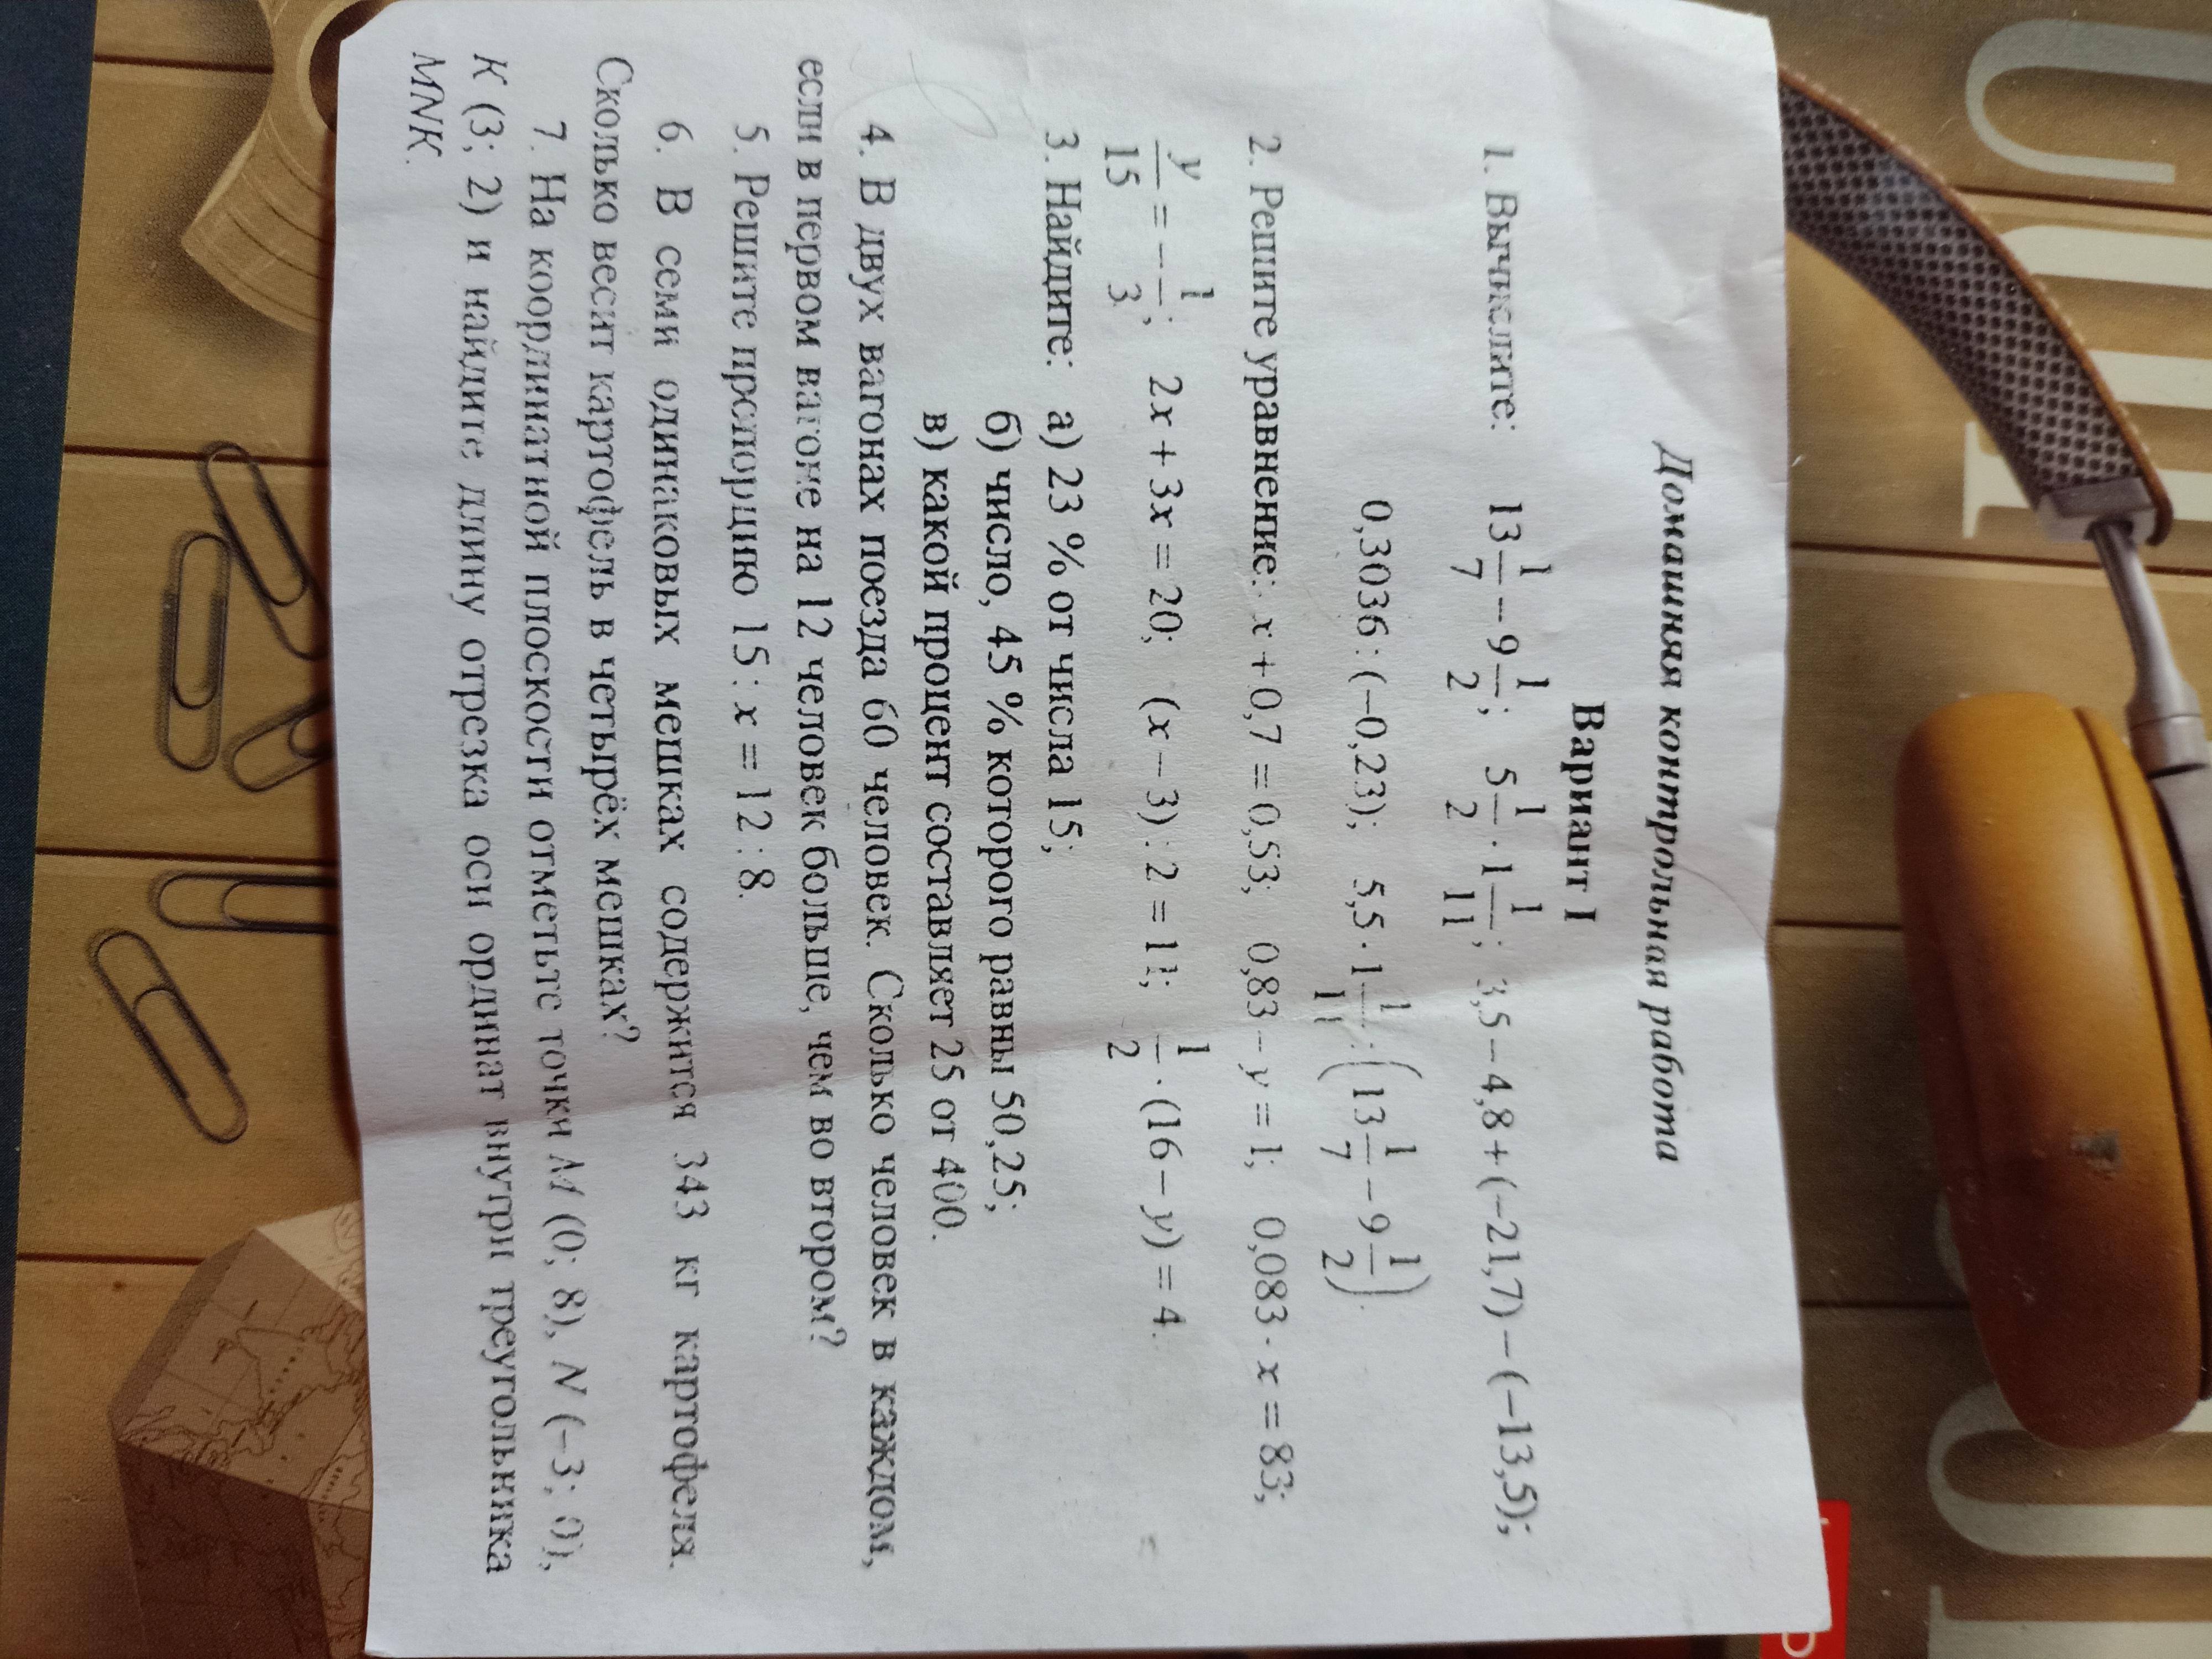 Домашняя контрольная работа
Вариант I
1. Вычислите: 13 1/7 − 9 1/2; 5 1/2 · 1 1/11; 3,5 − 4,8 + (−21,7) − (−13,5);
0,3036 : (−0,23); 5,5 · 1 1/11 : (13 1/7 − 9 1/2).
2. Решите уравнение: x + 0,7 = 0,53; 0,83 − y = 1; 0,083 · x = 83;
y/15 = −1/3; 2x + 3x = 20; (x − 3) : 2 = 11; 1/2 · (16 − y) = 4.
3. Найдите: а) 23 % от числа 15;
б) число, 45 % которого равны 50,25;
в) какой процент составляет 25 от 400.
4. В двух вагонах поезда 60 человек. Сколько человек в каждом,
если в первом вагоне на 12 человек больше, чем во втором?
5. Решите пропорцию 15 : x = 12 : 8.
6. В семи одинаковых мешках содержится 343 кг картофеля.
Сколько весит картофель в четырёх мешках?
7. На координатной плоскости отметьте точки M (0; 8), N (−3; 0),
K (3; 2) и найдите длину отрезка оси ординат внутри треугольника
MNK.